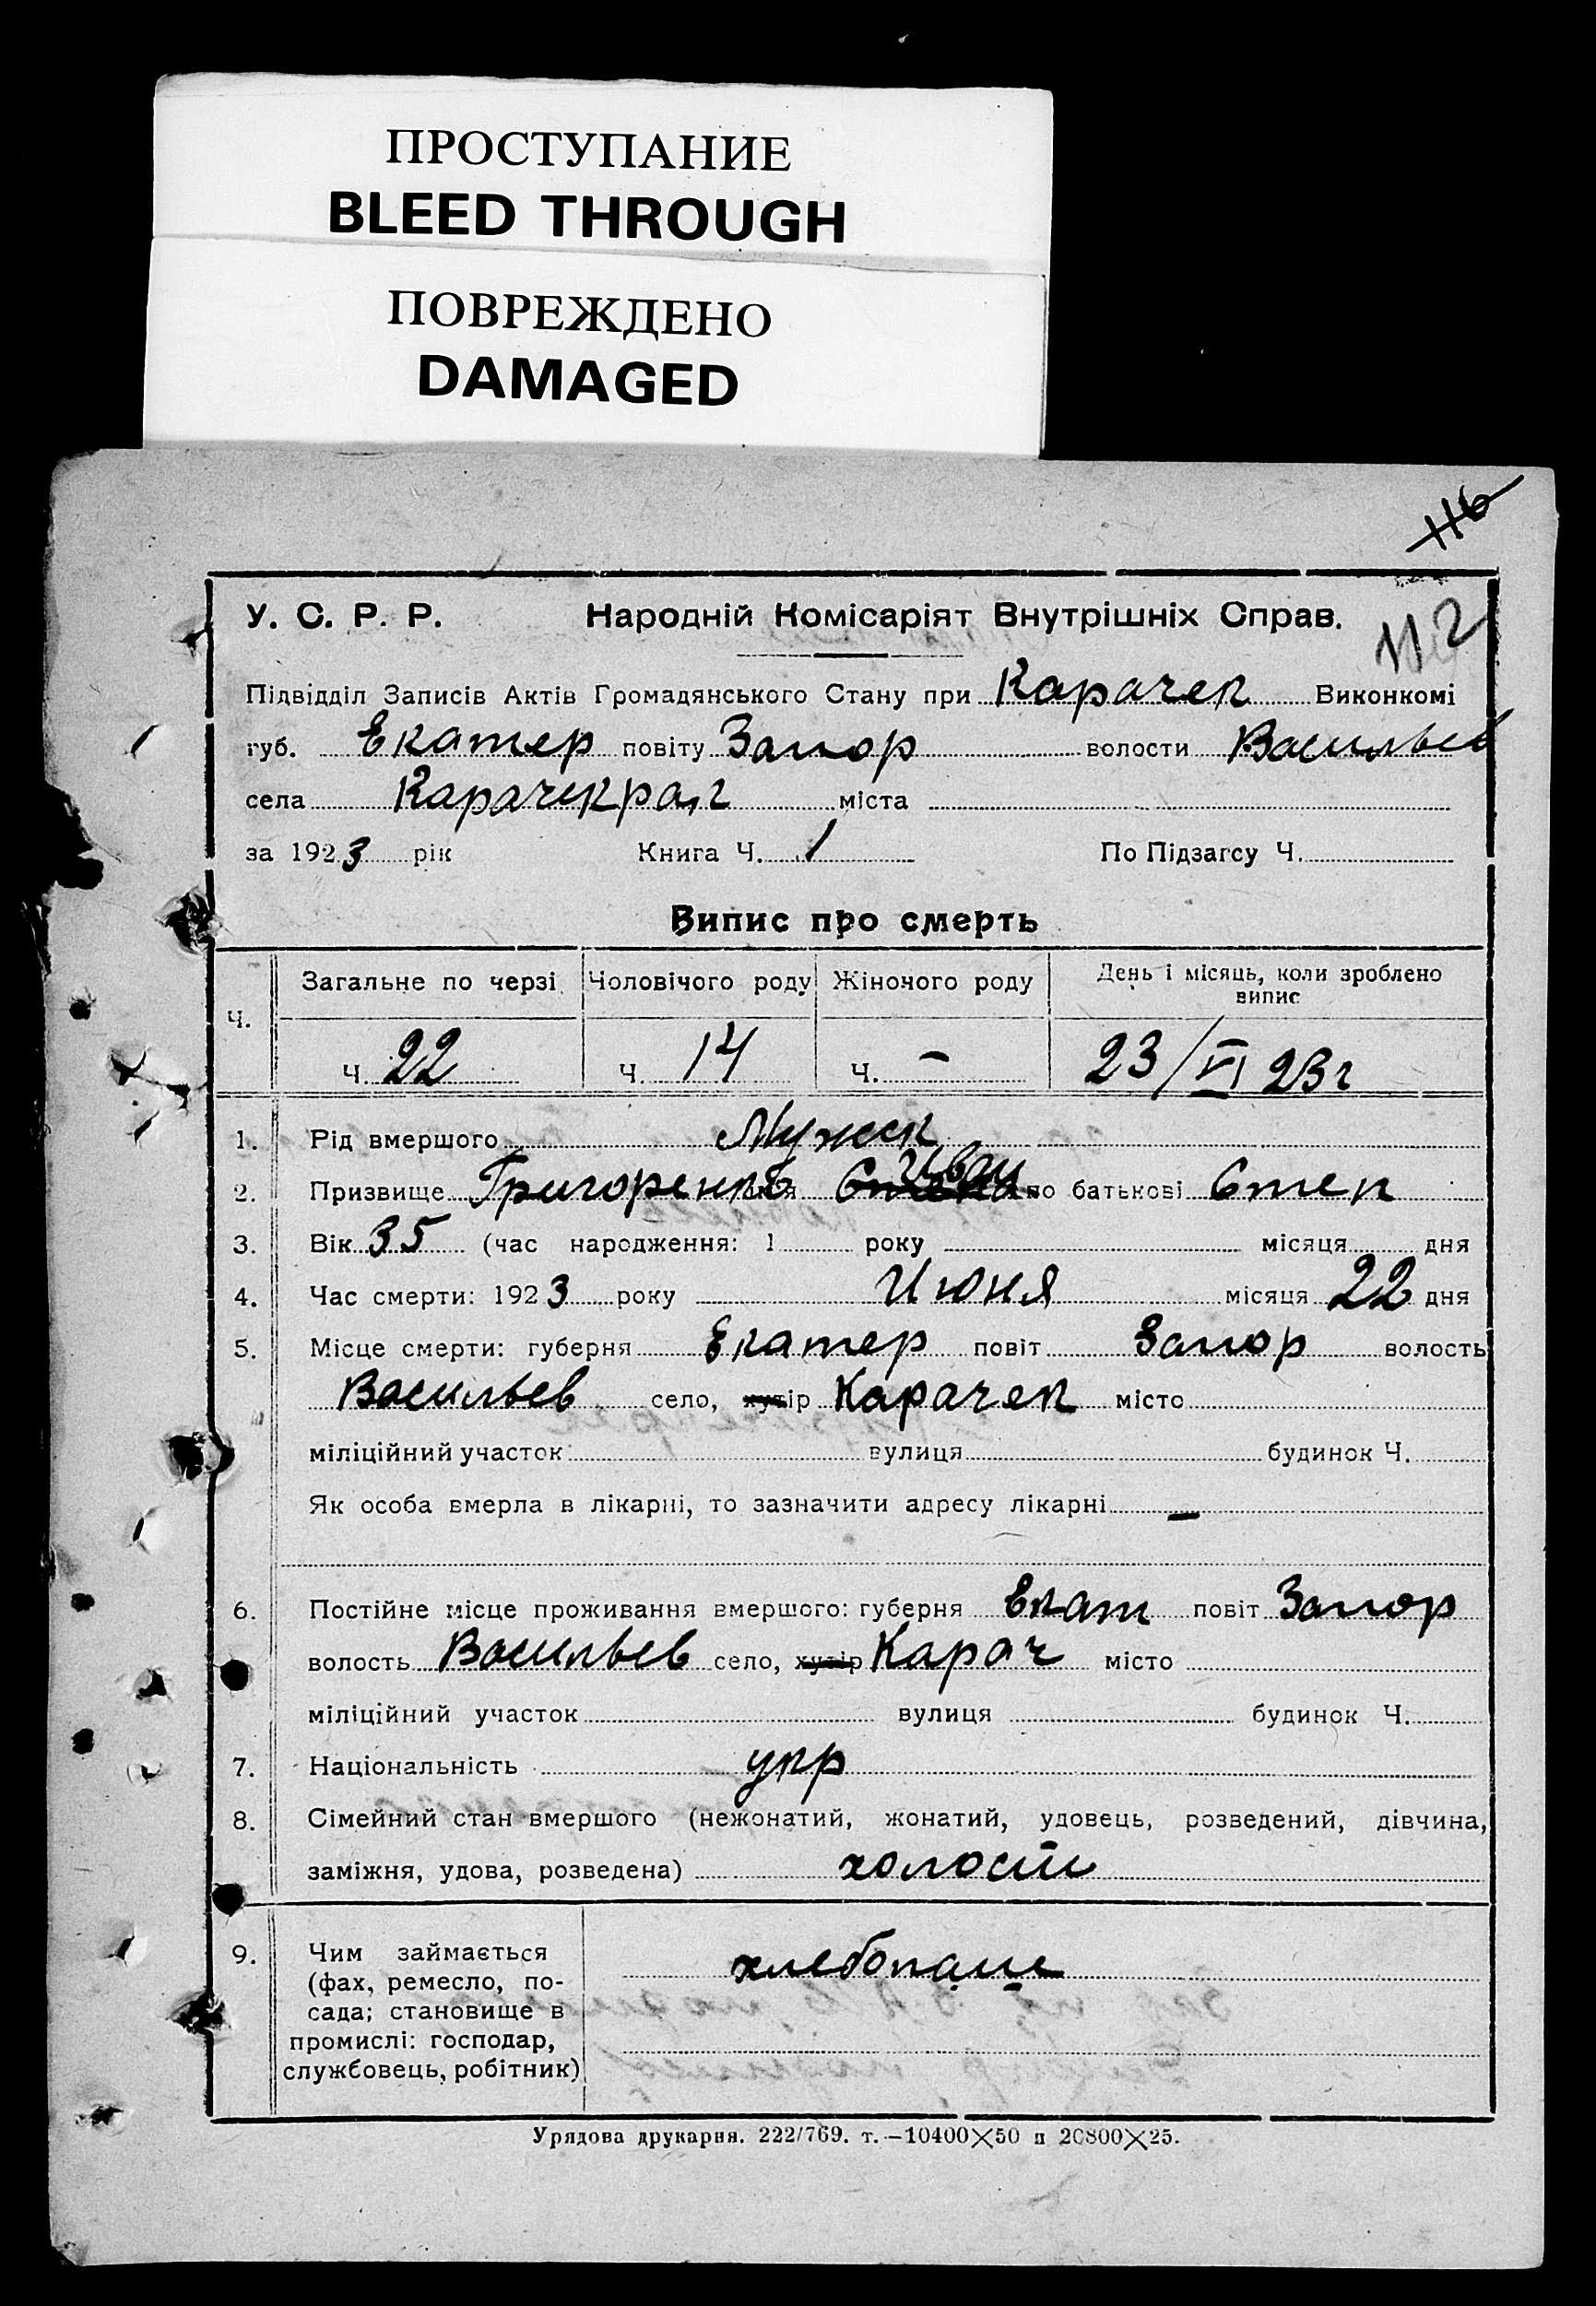 ПРОСТУПАНИЕ
BLEED THROUGH
ПОВРЕЖДЕНО
DAMAGED
116
У. С. Р. Р. Народній Комісаріят Внутрішніх Справ.
112
Підвідділ Записів Актів Громадянського Стану при Карачек Виконкомі
губ. Екатер повіту Запор волости Васильев
села Карачекрак міста
за 1923 рік Книга Ч. 1 По Підзагсу Ч.
Випис про смерть
Ч. Загальне по черзі Чоловічого роду Жіночого роду День і місяць, коли зроблено
випис
Ч. 22 Ч. 14 Ч. — 23/VI 23г
1. Рід вмершого Мужск
2. Призвище Григоренко Иван по батькові Степ
3. Вік 35 (час народження: 1 року місяця дня
4. Час смерти: 1923 року Июня місяця 22 дня
5. Місце смерти: губерня Екатер повіт Запор волость
Васильев село, хутір Карачек місто
міліційний участок вулиця будинок Ч.
Як особа вмерла в лікарні, то зазначити адресу лікарні —
6. Постійне місце проживання вмершого: губерня Екат повіт Запор
волость Васильев село, хутір Карач місто
міліційний участок вулиця будинок Ч.
7. Національність укр
8. Сімейний стан вмершого (нежонатий, жонатий, удовець, розведений, дівчина,
заміжня, удова, розведена) холост
9. Чим займається хлебопаше
(фах, ремесло, по-
сада; становище в
промислі: господар,
службовець, робітник)
Урядова друкарня. 222/769. т.—10400×50 п 20800×25.